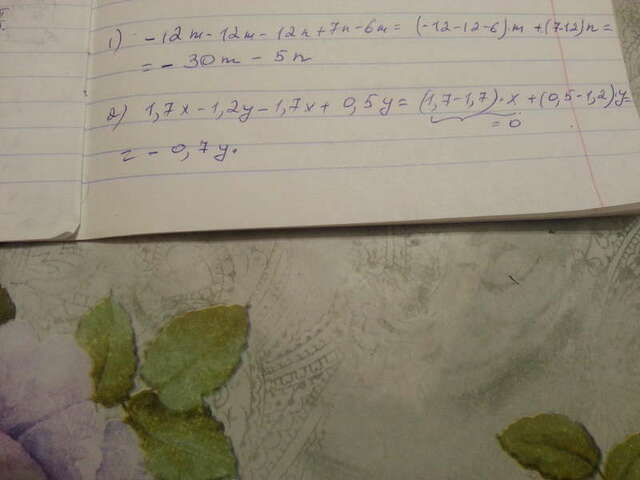 1) -12m-12m-12n+7n-6m= (-12-12-6)·m+(7-12)n=
=-30m-5n
2) 1,7x-1,2y-1,7x+0,5y= (1,7-1,7)·x+(0,5-1,2)·y=
=0
=-0,7y.